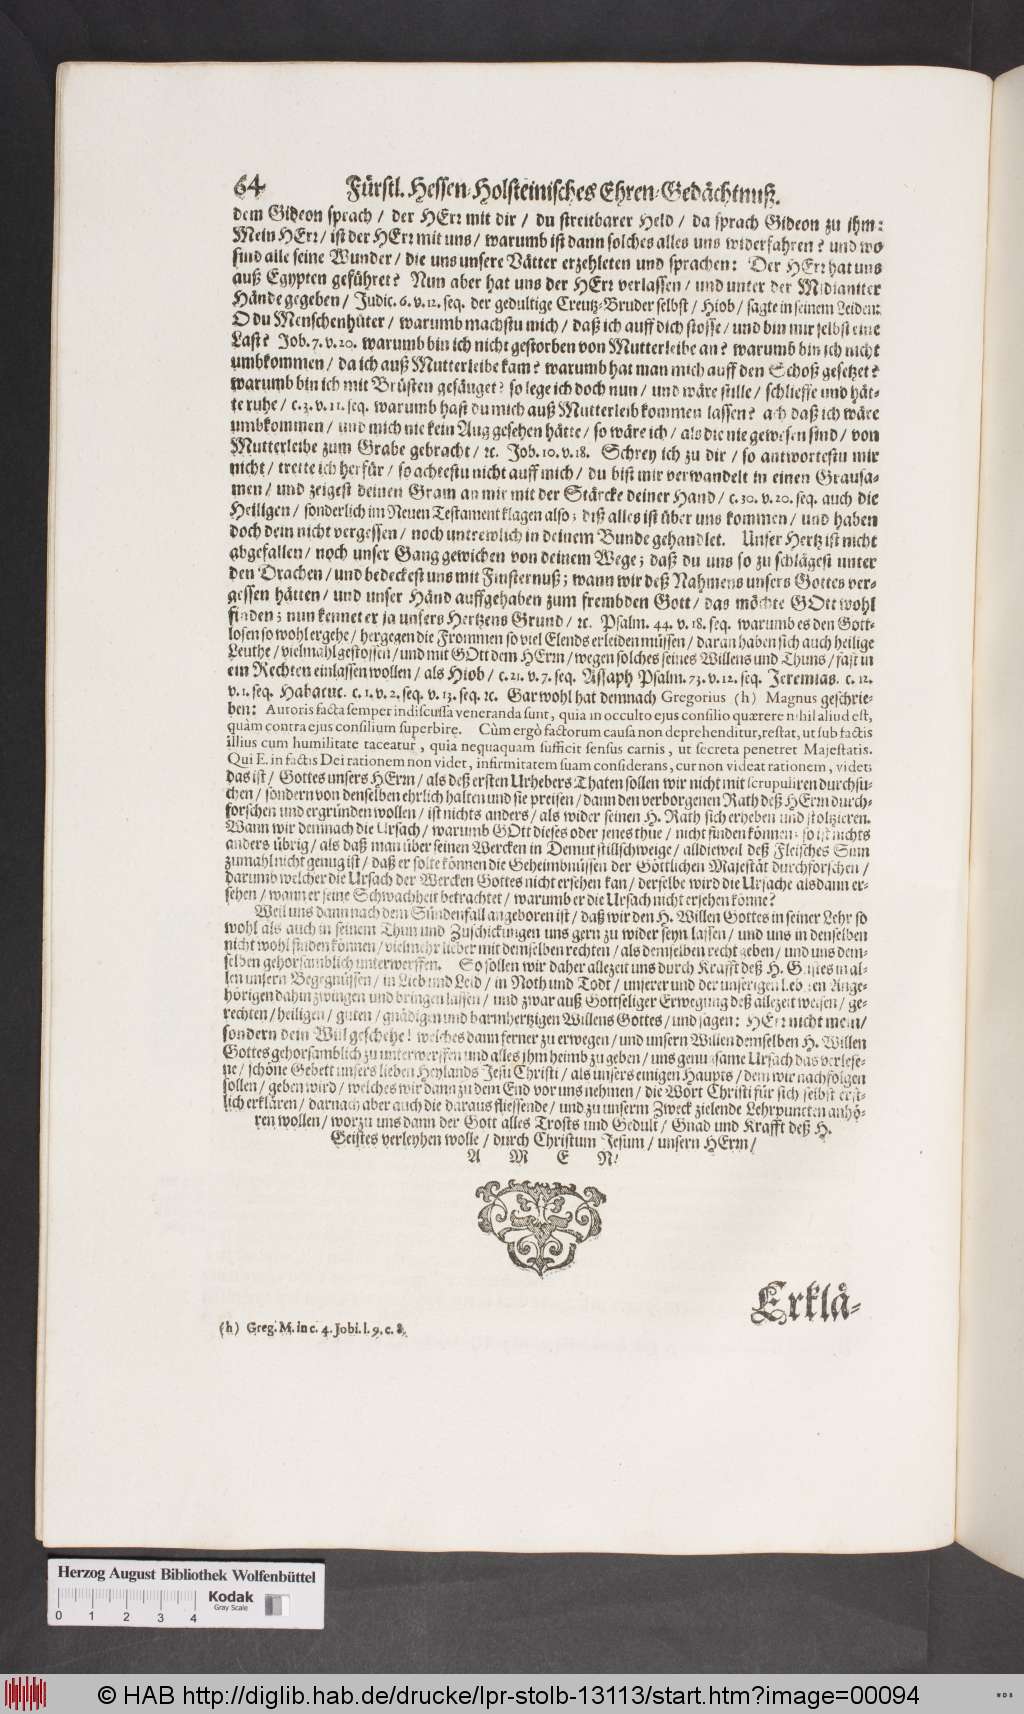 64 Fürstl. Hessen-Holsteinisches Ehren-Gedächtnuß.
dem Gideon sprach / der HErr mit dir / du streitbarer Held / da sprach Gideon zu ihm:
Mein HErr / ist der HErr mit uns / warumb ist dann solches alles uns widerfahren? und wo
sind alle seine Wunder / die uns unsere Vätter erzehleten und sprachen: Der HErr hat uns
auß Egypten geführet? Nun aber hat uns der HErr verlassen / und unter der Midianiter
Hände gegeben / Judic. 6. v. 12. seq. der gedultige Creutz-Bruder selbst / Hiob / sagte in seinem Leiden:
O du Menschenhüter / warumb machstu mich / daß ich auff dich stosse / und bin mir selbst eine
Last? Job. 7. v. 20. warumb bin ich nicht gestorben von Mutterleibe an? warumb bin ich nicht
umbkommen / da ich auß Mutterleibe kam? warumb hat man mich auff den Schoß gesetzet?
warumb bin ich mit Brüsten gesäuget? so lege ich doch nun / und wäre stille / schlieffe und hät-
te ruhe / c. 3. v. 11. seq. warumb hast du mich auß Mutterleib kommen lassen? ach daß ich wäre
umbkommen / und mich nie kein Aug gesehen hätte / so wäre ich / als die nie gewesen sind / von
Mutterleibe zum Grabe gebracht / ꝛc. Job. 10. v. 18. Schrey ich zu dir / so antwortestu mir
nicht / trette ich herfür / so achtestu nicht auff mich / du bist mir verwandelt in einen Grausa-
men / und zeigest deinen Gram an mir mit der Stärcke deiner Hand / c. 30. v. 20. seq. auch die
Heiligen / sonderlich im Neuen Testament klagen also; diß alles ist über uns kommen / und haben
doch dein nicht vergessen / noch untrewlich in deinem Bunde gehandlet. Unser Hertz ist nicht
abgefallen / noch unser Gang gewichen von deinem Wege; daß du uns so zu schlägest unter
den Drachen / und bedeckest uns mit Finsternuß; wann wir deß Nahmens unsers Gottes ver-
gessen hätten / und unser Händ auffgehaben zum frembden Gott / das möchte GOtt wohl
finden; nun kennet er ja unsers Hertzens Grund / ꝛc. Psalm. 44. v. 18. seq. warumb es den Gott-
losen so wohl ergehe / hergegen die Frommen so viel Elends erleiden müssen / daran haben sich auch heilige
Leuthe / vielmahl gestossen / und mit GOtt dem HErrn / wegen solches seines Willens und Thuns / fast in
ein Rechten einlassen wollen / als Hiob / c. 21. v. 7. seq. Assaph Psalm. 73. v. 12. seq. Jeremias. c. 12.
v. 1. seq. Habacuc. c. 1. v. 2. seq. v. 13. seq. ꝛc. Gar wohl hat demnach Gregorius (h) Magnus geschrie-
ben: Autoris facta semper indiscussa veneranda sunt, quia in occulto ejus consilio quærere nihil aliud est,
quàm contra ejus consilium superbire. Cùm ergò factorum causa non deprehenditur, restat, ut sub factis
illius cum humilitate taceatur, quia nequaquam sufficit sensus carnis, ut secreta penetret Majestatis.
Qui E. in factis Dei rationem non videt, infirmitatem suam considerans, cur non videat rationem, videt:
das ist / Gottes unsers HErrn / als deß ersten Urhebers Thaten sollen wir nicht mit scrupuliren durchsu-
chen / sondern von denselben ehrlich halten und sie preisen / dann den verborgenen Rath deß HErrn durch-
forschen und ergründen wollen / ist nichts anders / als wider seinen H. Rath sich erheben und stoltzieren.
Wann wir demnach die Ursach / warumb GOtt dieses oder jenes thüe / nicht finden können: so ist nichts
anders übrig / als daß man über seinen Wercken in Demut stillschweige / alldieweil deß Fleisches Sinn
zumahl nicht genug ist / daß er solte können die Geheimbnüssen der Göttlichen Majestät durchforschen /
darumb welcher die Ursach der Wercken Gottes nicht ersehen kan / derselbe wird die Ursache alsdann er-
sehen / wann er seine Schwachheit betrachtet / warumb er die Ursach nicht ersehen könne?
Weil uns dann nach dem Sündenfall angeboren ist / daß wir den H. Willen Gottes in seiner Lehr so
wohl als auch in seinem Thun und Zuschickungen uns gern zu wider seyn lassen / und uns in denselben
nicht wohl finden können / vielmehr lieber mit demselben rechten / als demselben recht geben / und uns dem-
selben gehorsamblich unterwerffen. So sollen wir daher allezeit uns durch Krafft deß H. Geistes in al-
len unsern Begegnüssen / in Lieb und Leid / in Noth und Todt / unserer und der unserigen lieben Ange-
hörigen dahin zwingen und bringen lassen / und zwar auß Gottseliger Erwegung deß allezeit weisen / ge-
rechten / heiligen / guten / gnädigen und barmhertzigen Willens Gottes / und sagen: HErr nicht mein /
sondern dein Will geschehe! welches dann ferner zu erwegen / und unsern Willen demselben H. Willen
Gottes gehorsamblich zu unterwerffen und alles ihm heimb zu geben / uns genugsame Ursach das verlese-
ne / schöne Gebett unsers lieben Heylands Jesu Christi / als unsers einigen Haupts / dem wir nachfolgen
sollen / geben wird / welches wir dann zu dem End vor uns nehmen / die Wort Christi für sich selbst erst-
lich erklären / darnach aber auch die daraus fliessende / und zu unserm Zweck zielende Lehrpuncten anhö-
ren wollen / worzu uns dann der Gott alles Trosts und Gedult / Gnad und Krafft deß H.
Geistes verleyhen wolle / durch Christum Jesum / unsern HErrn /
A M E N!
Erklä-
(h) Greg. M. in c. 4. Jobi. l. 9. c. 8.
Herzog August Bibliothek Wolfenbüttel
Kodak
Gray Scale
0 1 2 3 4
© HAB http://diglib.hab.de/drucke/lpr-stolb-13113/start.htm?image=00094